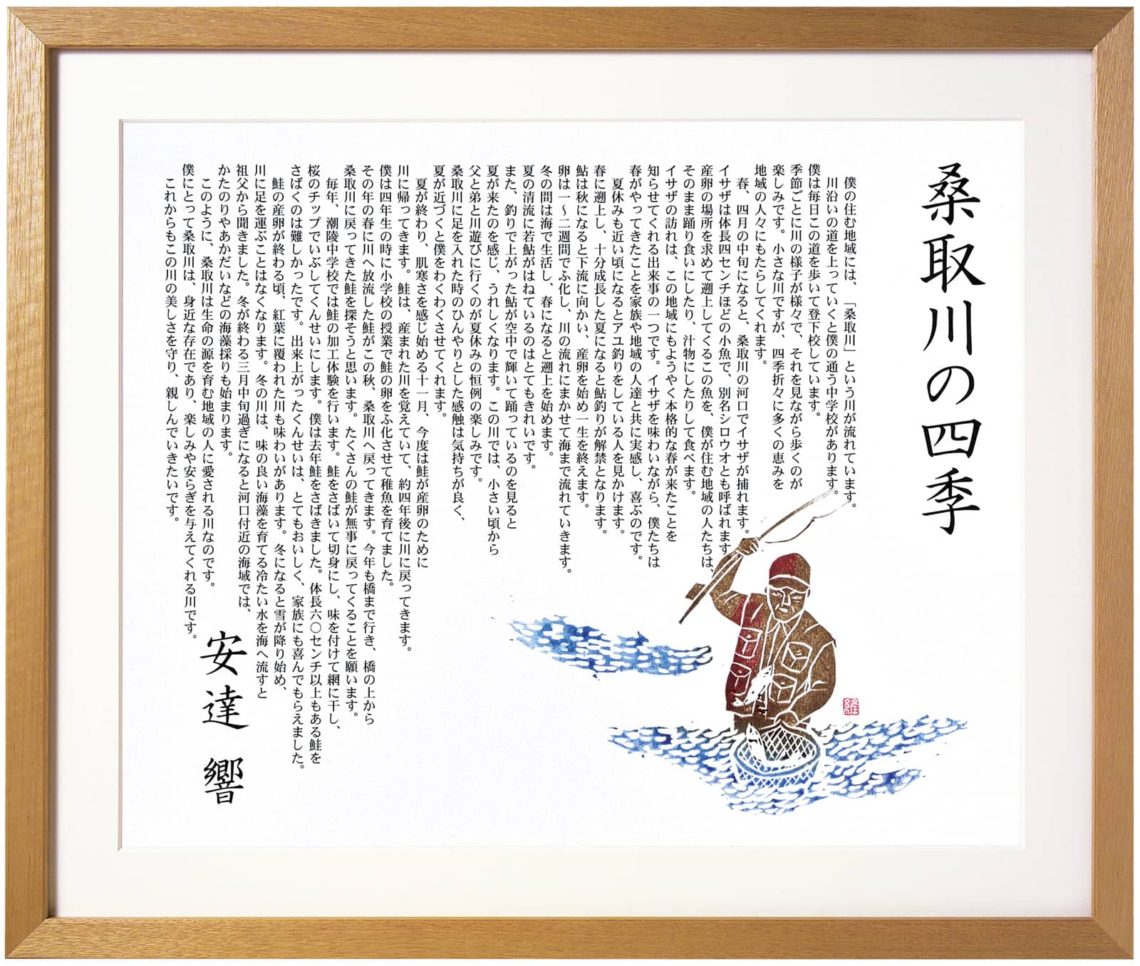 桑取川の四季
僕の住む地域には、「桑取川」という川が流れています。
川沿いの道を上っていくと僕の通う中学校があります。
僕は毎日この道を歩いて登下校しています。
季節ごとに川の様子が様々で、それを見ながら歩くのが
楽しみです。小さな川ですが、四季折々に多くの恵みを
地域の人々にもたらしてくれます。
春、四月の中旬になると、桑取川の河口でイサザが捕れます。
イサザは体長四センチほどの小魚で、別名シロウオとも呼ばれます。
産卵の場所を求めて遡上してくるこの魚を、僕が住む地域の人たちは、
そのまま踊り食いにしたり、汁物にしたりして食べます。
イサザの訪れは、この地域にもようやく本格的な春が来たことを
知らせてくれる出来事の一つです。イサザを味わいながら、僕たちは
春がやってきたことを家族や地域の人達と共に実感し、喜ぶのです。
夏休みも近い頃になるとアユ釣りをしている人を見かけます。
春に遡上し、十分成長した夏になると鮎釣りが解禁となります。
鮎は秋になると下流に向かい、産卵を始め一生を終えます。
卵は一〜二週間でふ化し、川の流れにまかせて海まで流れていきます。
冬の間は海で生活し、春になると遡上を始めます。
夏の清流に若鮎がはねているのはとてもきれいです。
また、釣りで上がった鮎が空中で輝いて踊っているのを見ると
夏が来たのを感じ、うれしくなります。この川では、小さい頃から
父と弟と川遊びに行くのが夏休みの恒例の楽しみです。
桑取川に足を入れた時のひんやりとした感触は気持ちが良く、
夏が近づくと僕をわくわくさせてくれます。
夏が終わり、肌寒さを感じ始める十一月、今度は鮭が産卵のために
川に帰ってきます。鮭は、産まれた川を覚えていて、約四年後に川に戻ってきます。
僕は四年生の時に小学校の授業で鮭の卵をふ化させて稚魚を育てました。
その年の春に川へ放流した鮭がこの秋、桑取川へ戻ってきます。今年も橋まで行き、橋の上から
桑取川に戻ってきた鮭を探そうと思います。たくさんの鮭が無事に戻ってくることを願います。
毎年、潮陵中学校では鮭の加工体験を行います。鮭をさばいて切身にし、味を付けて網に干し、
桜のチップでいぶしてくんせいにします。僕は去年鮭をさばきました。体長六〇センチ以上もある鮭を
さばくのは難しかったです。出来上がったくんせいは、とてもおいしく、家族にも喜んでもらえました。
鮭の産卵が終わる頃、紅葉に覆われた川も味わいがあります。冬になると雪が降り始め、
川に足を運ぶことはなくなります。冬の川は、味の良い海藻を育てる冷たい水を海へ流すと
祖父から聞きました。冬が終わる三月中旬過ぎになると河口付近の海域では、
かたのりやあかだいなどの海藻採りも始まります。
このように、桑取川は生命の源を育む地域の人に愛される川なのです。
僕にとって桑取川は、身近な存在であり、楽しみや安らぎを与えてくれる川です。
これからもこの川の美しさを守り、親しんでいきたいです。
安達 響